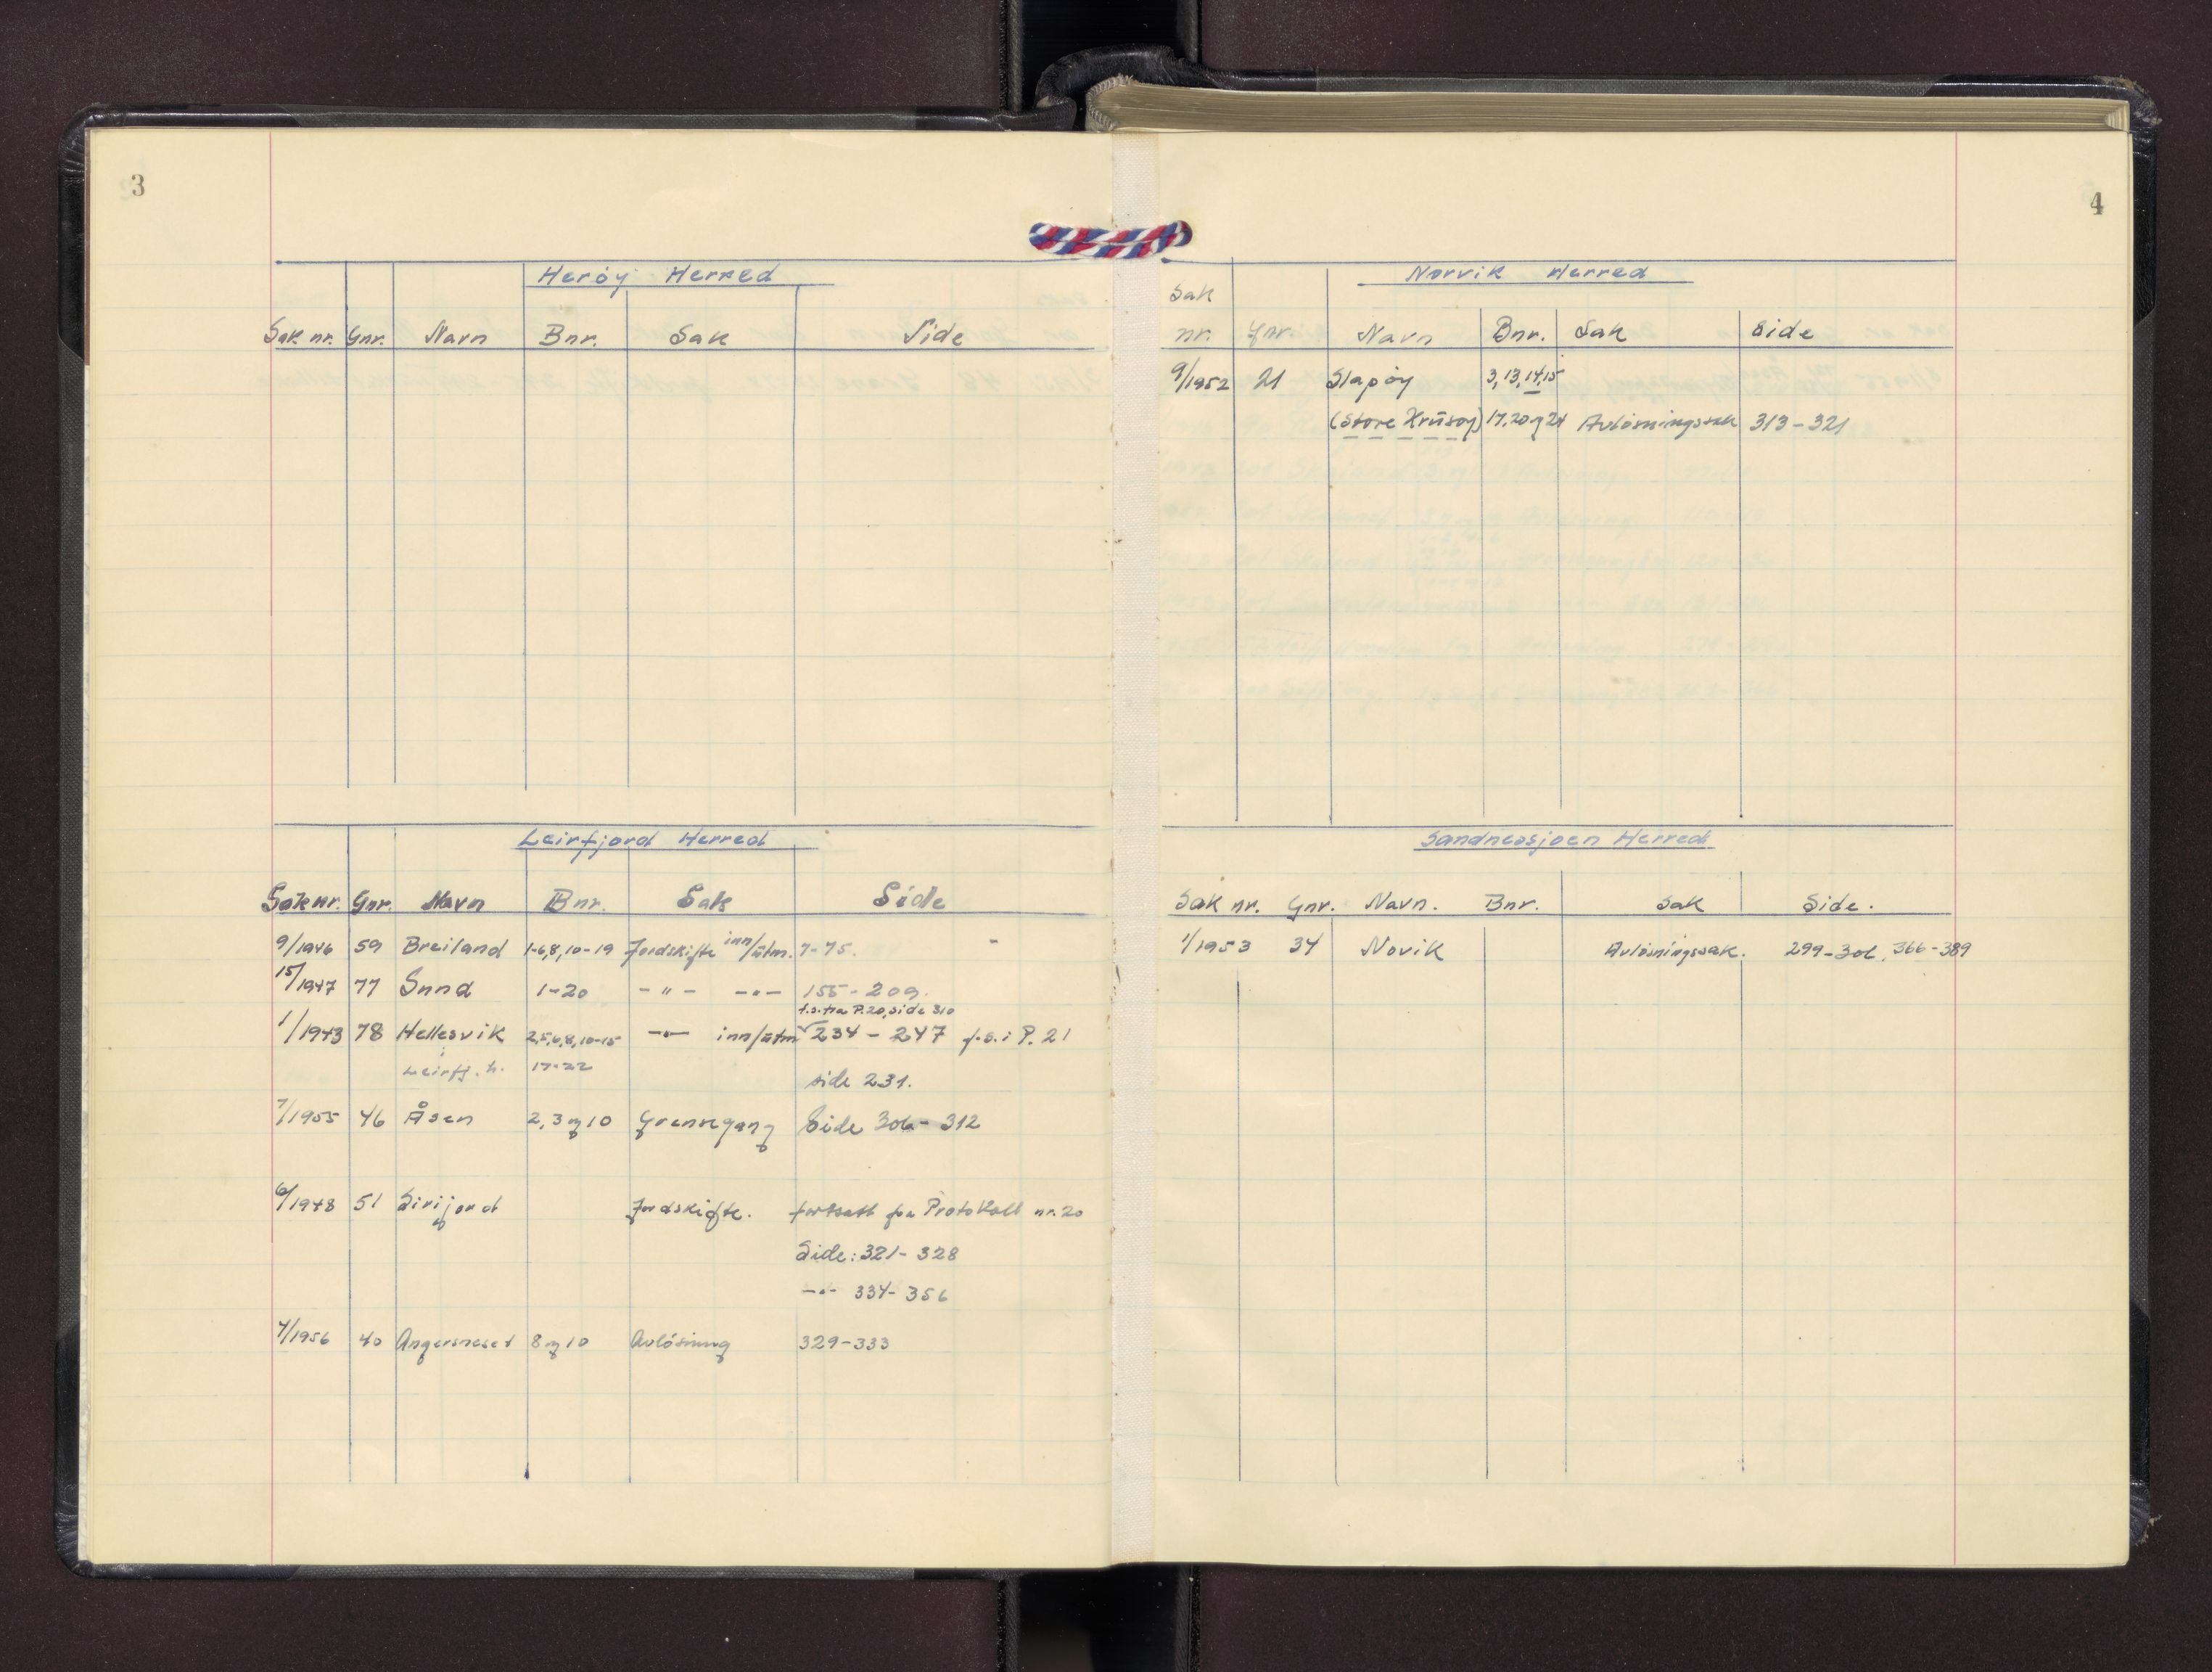 3
Herøy Herred
Sak nr. Gnr. Navn Bnr. Sak Side
Leirfjord Herred
Sak nr. Gnr. Navn Bnr. Sak Side
9/1946 59 Breiland 1-6,8,10-19 Jordskifte inn/utm. 7-75.
15/1947 77 Sund 1-20 -"- -"- 155-209.
f.s. fra P.20, side 310
1/1943 78 Hellesvik 2,5,6,8,10-15 -"- inn/utm 234-247 f.s. i P. 21
Leirfj. h. 17-22 side 231.
7/1955 46 Åsen 2, 3 og 10 Grensegang Side 306-312
6/1948 51 Sirijord Jordskifte. fortsatt fra Protokoll nr. 20
Side: 321-328
-"- 334-356
4/1956 40 Angersneset 8 og 10 Avløsning 329-333
4
Nørvik Herred
Sak
nr. Gnr. Navn Bnr. Sak Side
9/1952 21 Slapøy 3, 13, 14, 15
(Store 17, 20 og 24 Avløsningssak 313-321
Sandnessjøen Herred
Sak nr. Gnr. Navn. Bnr. Sak Side.
1/1953 34 Novik Avløsningssak. 299-306, 366-389